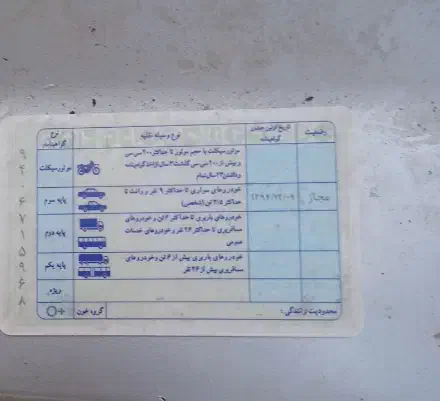 وضعیت تاریخ اولین صدور گواهینامه نوع وسیله نقلیه نوع گواهینامه
موتورسیکلت با حجم موتور تا حداکثر ۲۰۰ سی سی
و بیش از ۲۰۰ سی سی گذشت ۳ سال از اخذ گواهینامه
و داشتن ۲۳ سال تمام
موتورسیکلت
مجاز ۱۳۹۶/۱۲/۰۹
خودروهای سواری تا حداکثر ۹ نفر و وانت تا
حداکثر ۳/۵ تن (شخصی)
پایه سوم
خودروهای باربری تا حداکثر ۶ تن و خودروهای
مسافربری تا حداکثر ۲۶ نفر و خودروهای خدمات
عمومی
پایه دوم
خودروهای باربری بیش از ۶ تن و خودروهای
مسافربری بیش از ۲۶ نفر
پایه یکم
ویژه
محدودیت رانندگی: گروه خون O+